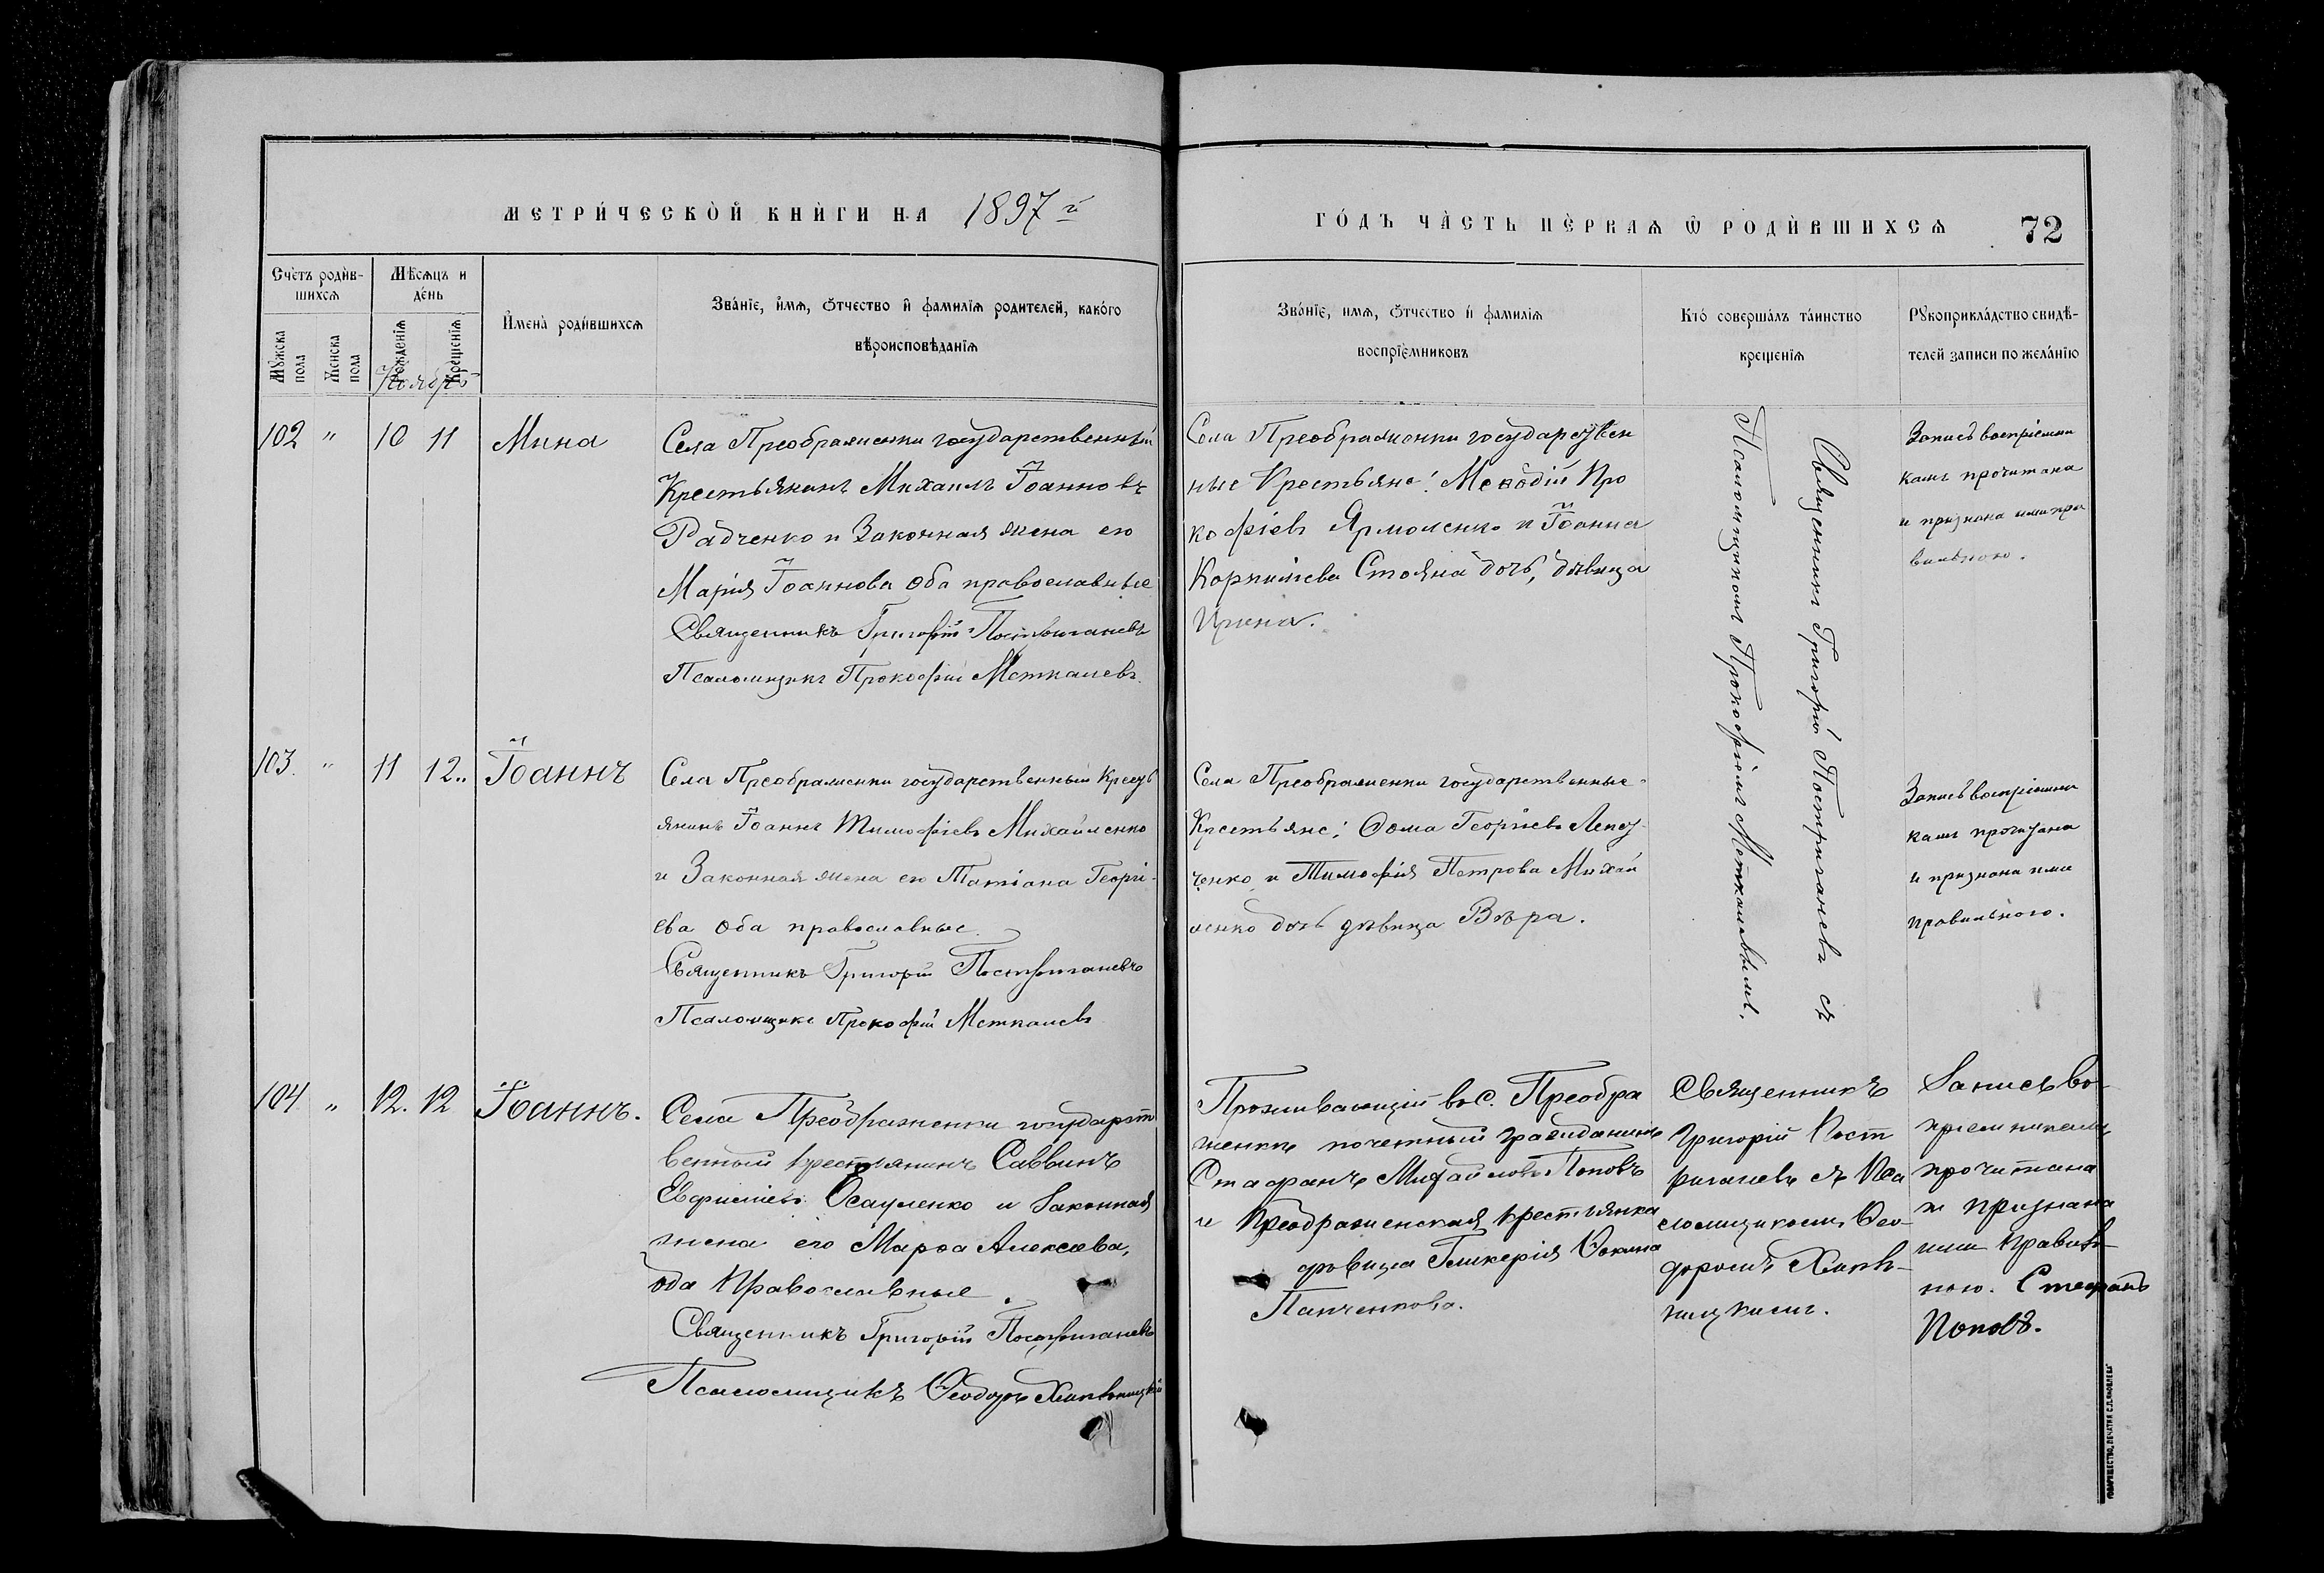 МЕТРИ́ЧЕСКО́Й КНИ́ГИ НА 1897 й
ГО́ДЪ ЧА́СТЬ ПЕ́РВАѦ Ѡ РОДИ́ВШИХСѦ 72
Сче́тъ роди́в-
шихсѧ
Мꙋжска
пола
Женска
пола
Мѣсѧцъ и
де́нь
Рожденїѧ
Крещенїѧ
Ноябрь
И҆мена̀ роди́вшихсѧ
Зва́нїе, и҆мѧ, ѻ҆тчество и҆ фамилїѧ родителей, како́го
вѣроисповѣданїѧ
Зва́нїе, имѧ, ѻ҆тчество и҆ фамилїѧ
воспрїе́мниковъ
Кто́ соверша́лъ та́инство
крещенїѧ
Рꙋкоприкла́дство свидѣ́-
телей записи по жела́нїю
102 " 10 11 Мина
Села Преображенки государственный
Крестьянинъ Михаилъ Іоанновъ
Радченко и Законная жена его
Марія Іоаннова оба православные
Священникъ Григорій Постригачевъ
Псаломщикъ Прокофій Меткалевъ.
Села Преображенки государствен
ные Крестьяне: Меѳодій Про
кофіевъ Ярмоленко и Іоанна
Корнильева Стояна дочь, дѣвица
Ирина.
Священникъ Григорій Постригачевъ съ
Псаломщикомъ Прокофіемъ Меткалевымъ.
Запись воспріемни
камъ прочитана
и признана ими пра
вильною.
103. " 11 12.. Іоаннъ
Села Преображенки государственный Кресть
янинъ Іоаннъ Тимофіевъ Михайленко
и Законная жена его Татіана Георгі-
ева оба православные.
Священникъ Григорій Постригачевъ
Псаломщикъ Прокофій Меткалевъ
Села Преображенки государственные
Крестьяне: Ѳома Георгіевъ
ченко и Тимофія Петрова Михай
ленко дочь дѣвица Вѣра.
Запись воспріемни
камъ прочитана
и признана ими
правильною.
104 " 12. 12 Іоаннъ.
Села Преображенки государст
венный крестьянинъ Саввинъ
Евфиміевъ Осауленко и Законная
жена его Марѳа Алексѣева,
оба Православные.
Священникъ Григорій Постригачевъ
Псаломщикъ Ѳеодоръ
Проживающій въ С. Преобра
женкѣ почетный гражданинъ
Стафанъ Михайловъ Поповъ
и Преображенская крестьянка
дѣвица Гликерія Ѳокина
Панченкова.
Священникъ
Григорій Пост
ригачевъ съ Пса
ломщикомъ Ѳео-
доромъ
Запись во-
пріемникамъ
прочитана
и признана
ими правиль-
ною. Стефанъ
Поповъ.